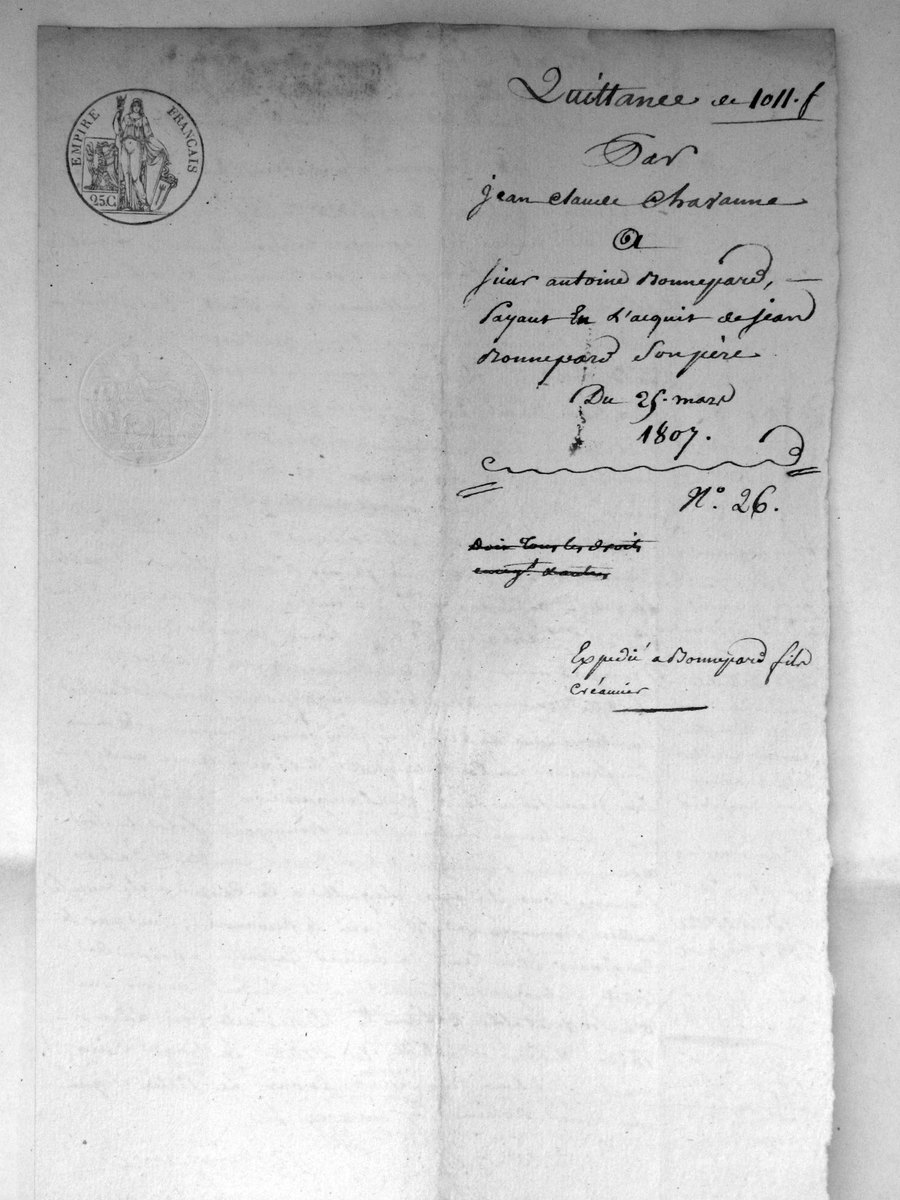 EMPIRE FRANÇAIS
25.C.
Quittance de 1011. f
Par
jean claude Chavanne
A
sieur antoine Bonnepard,
Payant En L'acquit de jean
Bonnepard Son père
Du 25. mars
1807.
N.o 26.
Doit tous les droits
Expedié a Bonnepard fils
Créancier